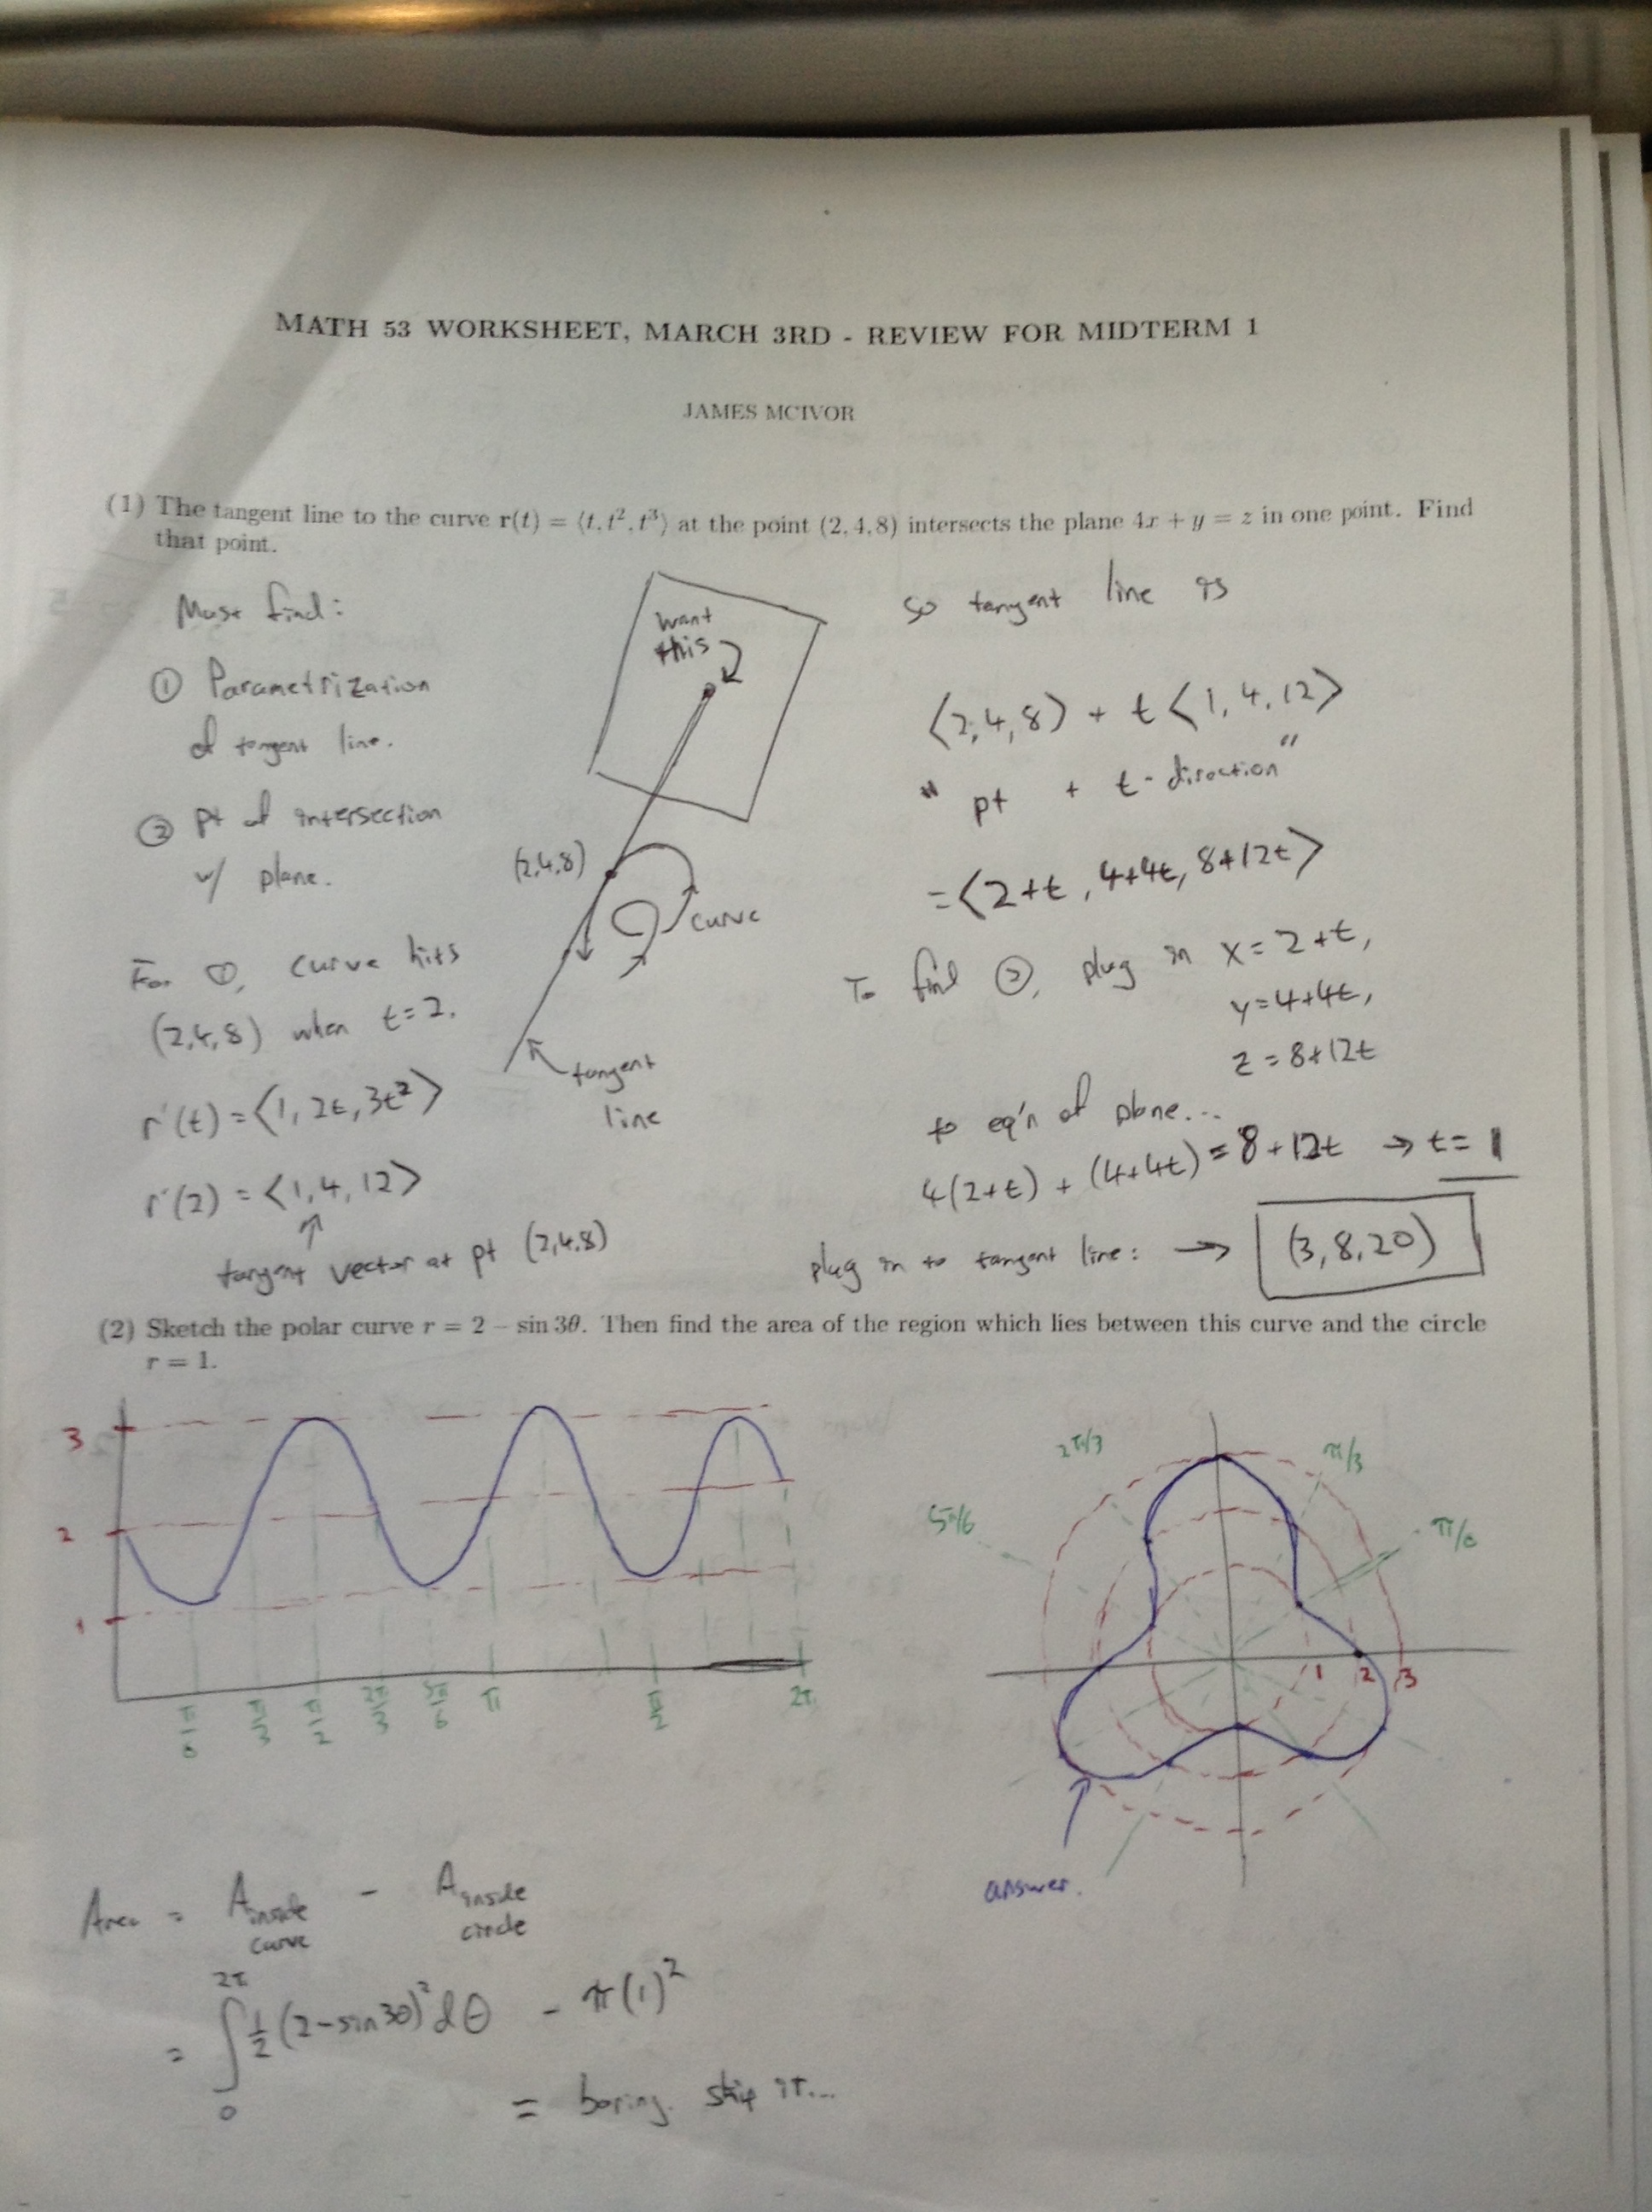 MATH 53 WORKSHEET, MARCH 3RD - REVIEW FOR MIDTERM 1
JAMES MCIVOR
(1) The tangent line to the curve r(t) = ⟨t, t², t³⟩ at the point (2, 4, 8) intersects the plane 4x + y = z in one point. Find
that point.
Must find:
① Parametrization
of tangent line.
② pt of intersection
w/ plane.
For ①, curve hits
(2,4,8) when t=2.
r'(t) = ⟨1, 2t, 3t²⟩
r'(2) = ⟨1, 4, 12⟩
↑
tangent vector at pt (2,4,8)
want
this
(2,4,8)
curve
tangent
line
so tangent line is
⟨2,4,8⟩ + t⟨1,4,12⟩
" pt + t-direction "
= ⟨2+t, 4+4t, 8+12t⟩
To find ②, plug in x=2+t,
y=4+4t,
z=8+12t
to eq'n of plane...
4(2+t) + (4+4t) = 8+12t → t=1
plug in to tangent line: → (3,8,20)
(2) Sketch the polar curve r = 2 − sin 3θ. Then find the area of the region which lies between this curve and the circle
r = 1.
3
2
1
π/6 π/3 π/2 2π/3 5π/6 π π/2 2π
2π/3
π/3
5π/6
π/6
1 2 3
answer.
Area = A inside curve − A inside circle
= ∫₀^2π ½(2−sin3θ)² dθ − π(1)²
= boring. skip it...